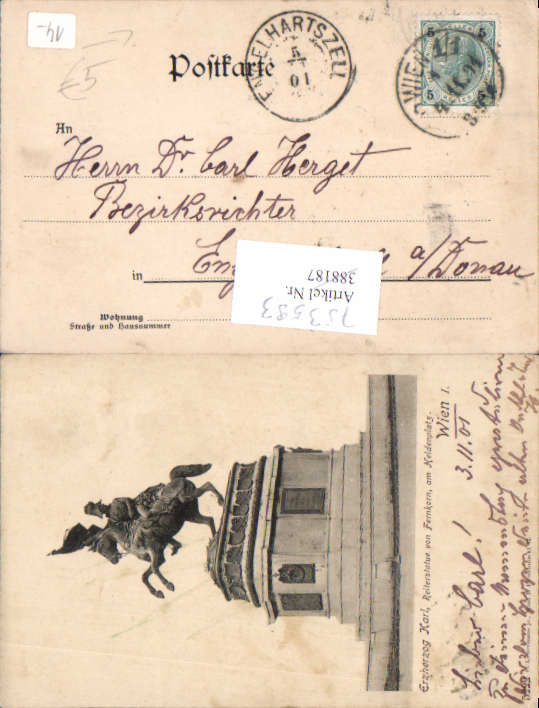 -14
€5
Postkarte
ENGELHARTSZELL
5
01
WIEN 1/1
5 5
5 5
An
Herrn Dr. Carl Herget
Bezirksrichter
in Eng a/Donau
Artikel Nr.
388187
753593
Wohnung
Straße und Hausnummer
Wien I.
Erzherzog Karl, Reiterstatue von Fernkorn, am Heldenplatz.
3.11.01
Lieber Carl!
Zu Deinem Namenstag